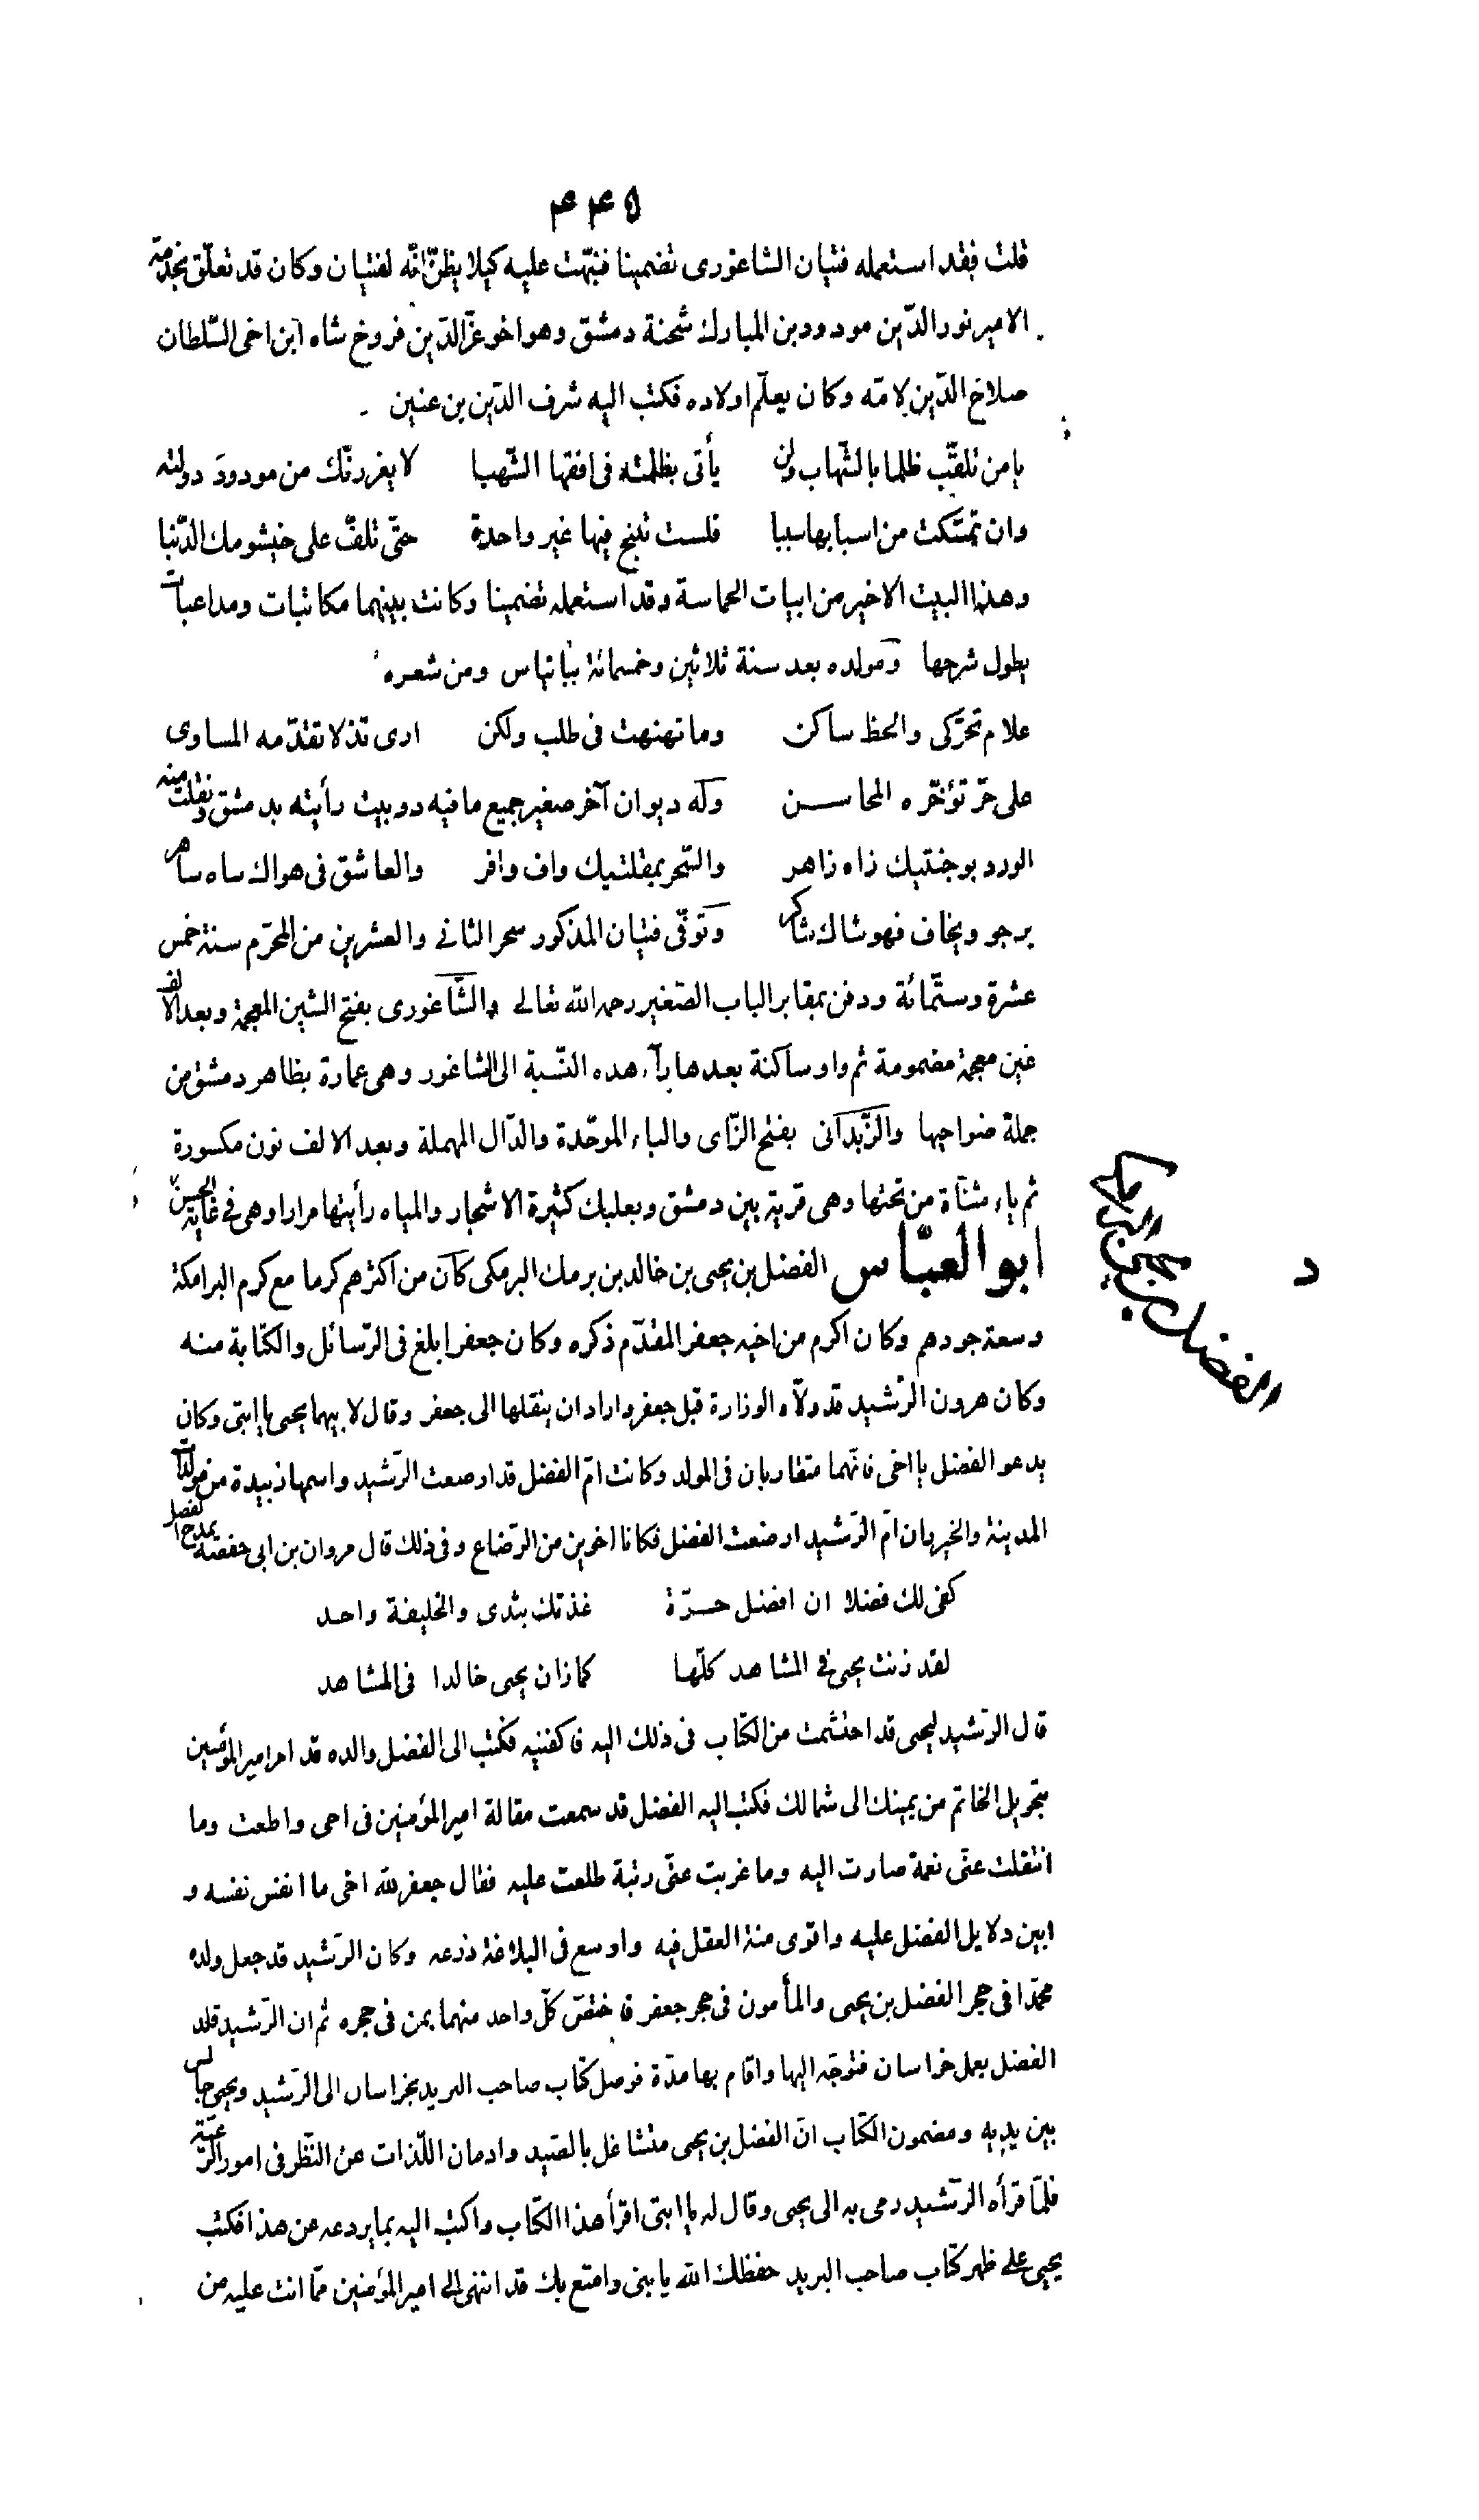 ٤٤٥
قلت فقد استعمله فتيان الشاغورى تضمينا فنبّهت عليه كيلا يظنّ انّه لفتيان وكان قد تعلّق بخدمة
الامير نور الدّين مودود بن المبارك شحنة دمشق وهو اخو عزّ الدّين فروخ شاه ابن اخى السّلطان
صلاح الدّين لامّه وكان يعلّم اولاده فكتب اليه شرف الدّين بن عنين
يا من تلقّب ظلما بالشّهاب ولن يأتى بظلمته فى افقها الشّهبا لا يغررنّك من مودود دولته
وان تمسّكت من اسبابها سببا فلست تنبح فيها غير واحدة حتّى تلفّ على خيشومك الذّنبا
وهذا البيت الاخير من ابيات الحماسة وقد استعمله تضمينا وكانت بينهما مكاتبات ومداعبات
يطول شرحها ومولده بعد سنة ثلاثين وخمسمائة ببانياس ومن شعره
علام تحرّكى والحظ ساكن وما نهنهت فى طلب ولكن ارى نذلا تقدّمه المساوى
على حرّ تؤخّره المحاسـن وله ديوان آخر صغير جميع ما فيه دوبيت رأيته بدمشق ونقلت منه
الورد بوجنتيك زاه زاهر والسّحر بمقلتيك واف وافر والعاشق فى هواك ساه ساهر
يرجو ويخاف فهو شاك شاكر وتوفّى فتيان المذكور سحر الثانى والعشرين من المحرّم سنة خمس
عشرة وستّمائة ودفن بمقابر الباب الصّغير رحمه الله تعالى والشّاغورى بفتح الشين المعجمة وبعد الالف
غين معجمة مضمومة ثم واو ساكنة بعدها راء هذه النّسبة الى الشاغور وهى عمارة بظاهر دمشق من
جملة ضواحيها والزّبدانى بفتح الزّاى والباء الموحّدة والدّال المهملة وبعد الالف نون مكسورة
ثم ياء مثنّاة من تحتها وهى قرية بين دمشق وبعلبك كثيرة الاشجار والمياه رأيتها مرارا وهى فى غاية الحسن
ابو العبّاس الفضل بن يحيى بن خالد بن برمك البرمكى كان من اكثرهم كرما مع كرم البرامكة
الفضل بن يحيى البرمكى
د
وسعة جودهم وكان اكرم من اخيه جعفر المقدّم ذكره وكان جعفر ابلغ فى الرّسائل والكتابة منه
وكان هرون الرّشيد قد ولّاه الوزارة قبل جعفر واراد ان ينقلها الى جعفر وقال لابيهما يحيى يا ابتى وكان
يدعو الفضل يا اخى فانّهما متقاربان فى المولد وكانت امّ الفضل قد ارضعت الرّشيد واسمها زبيدة من مولّدات
المدينة والخيزران امّ الرّشيد ارضعت الفضل فكانا اخوين من الرّضاع وفى ذلك قال مروان بن ابى حفصة يمدح الفضل
كفى لك فضلا ان افضل حـرّة غذتك بثدى والخليفة واحد
لقد زنت يحيى فى المشاهد كلّها كما زان يحيى خالدا فى المشاهد
قال الرّشيد ليحيى قد احتشمت من الكتاب فى ذلك اليه فاكفنيه فكتب الى الفضل والده قد امر امير المؤمنين
بتحويل الخاتم من يمينك الى شمالك فكتب اليه الفضل قد سمعت مقالة امير المؤمنين فى اخى واطعت وما
انتقلت عنّى نعمة صارت اليه وما غربت عنّى رتبة طلعت عليه فقال جعفر للّه اخى ما انفس نفسه و
ابين دلايل الفضل عليه واقوى منة العقل فيه واوسع فى البلاغة ذرعه وكان الرّشيد قد جعل ولده
محمّدا فى حجر الفضل بن يحيى والمأمون فى حجر جعفر فاختصّ كلّ واحد منهما بمن فى حجره ثم ان الرّشيد قلد
الفضل بعمل خراسان فتوجّه اليها واقام بها مدّة فوصل كتاب صاحب البريد بخراسان الى الرّشيد ويحيى جالس
بين يديه ومضمون الكتاب انّ الفضل بن يحيى متشاغل بالصّيد وادمان اللّذات عن النّظر فى امور الرّعيّة
فلمّا قرأه الرّشيد رمى به الى يحيى وقال له يا ابتى اقرأ هذا الكتاب واكتب اليه بما يردعه عن هذا فكتب
يحيى على ظهر كتاب صاحب البريد حفظك الله يا بنى وامتع بك قد انتهى الى امير المؤمنين ممّا انت عليه من